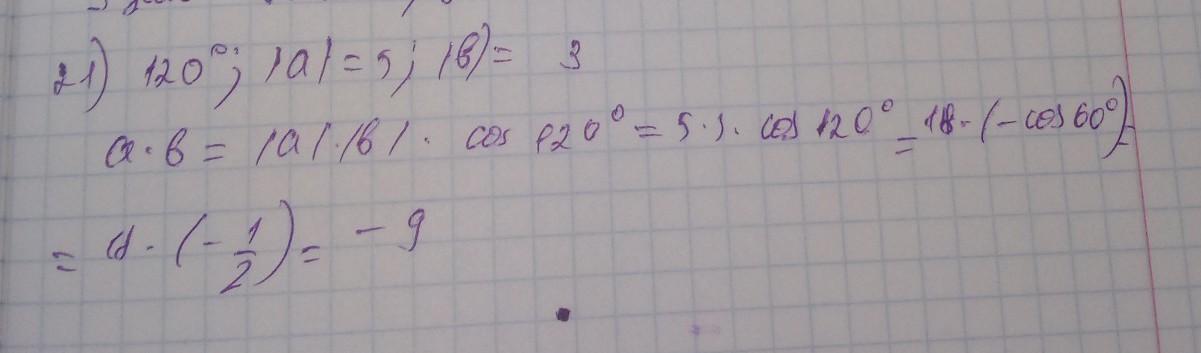 21) 120°; |a| = 5; |b| = 3
a · b = |a| · |b| · cos 120° = 5 · 3 · cos 120° = 18 · (-cos 60°) =
= · (-1/2) = -9